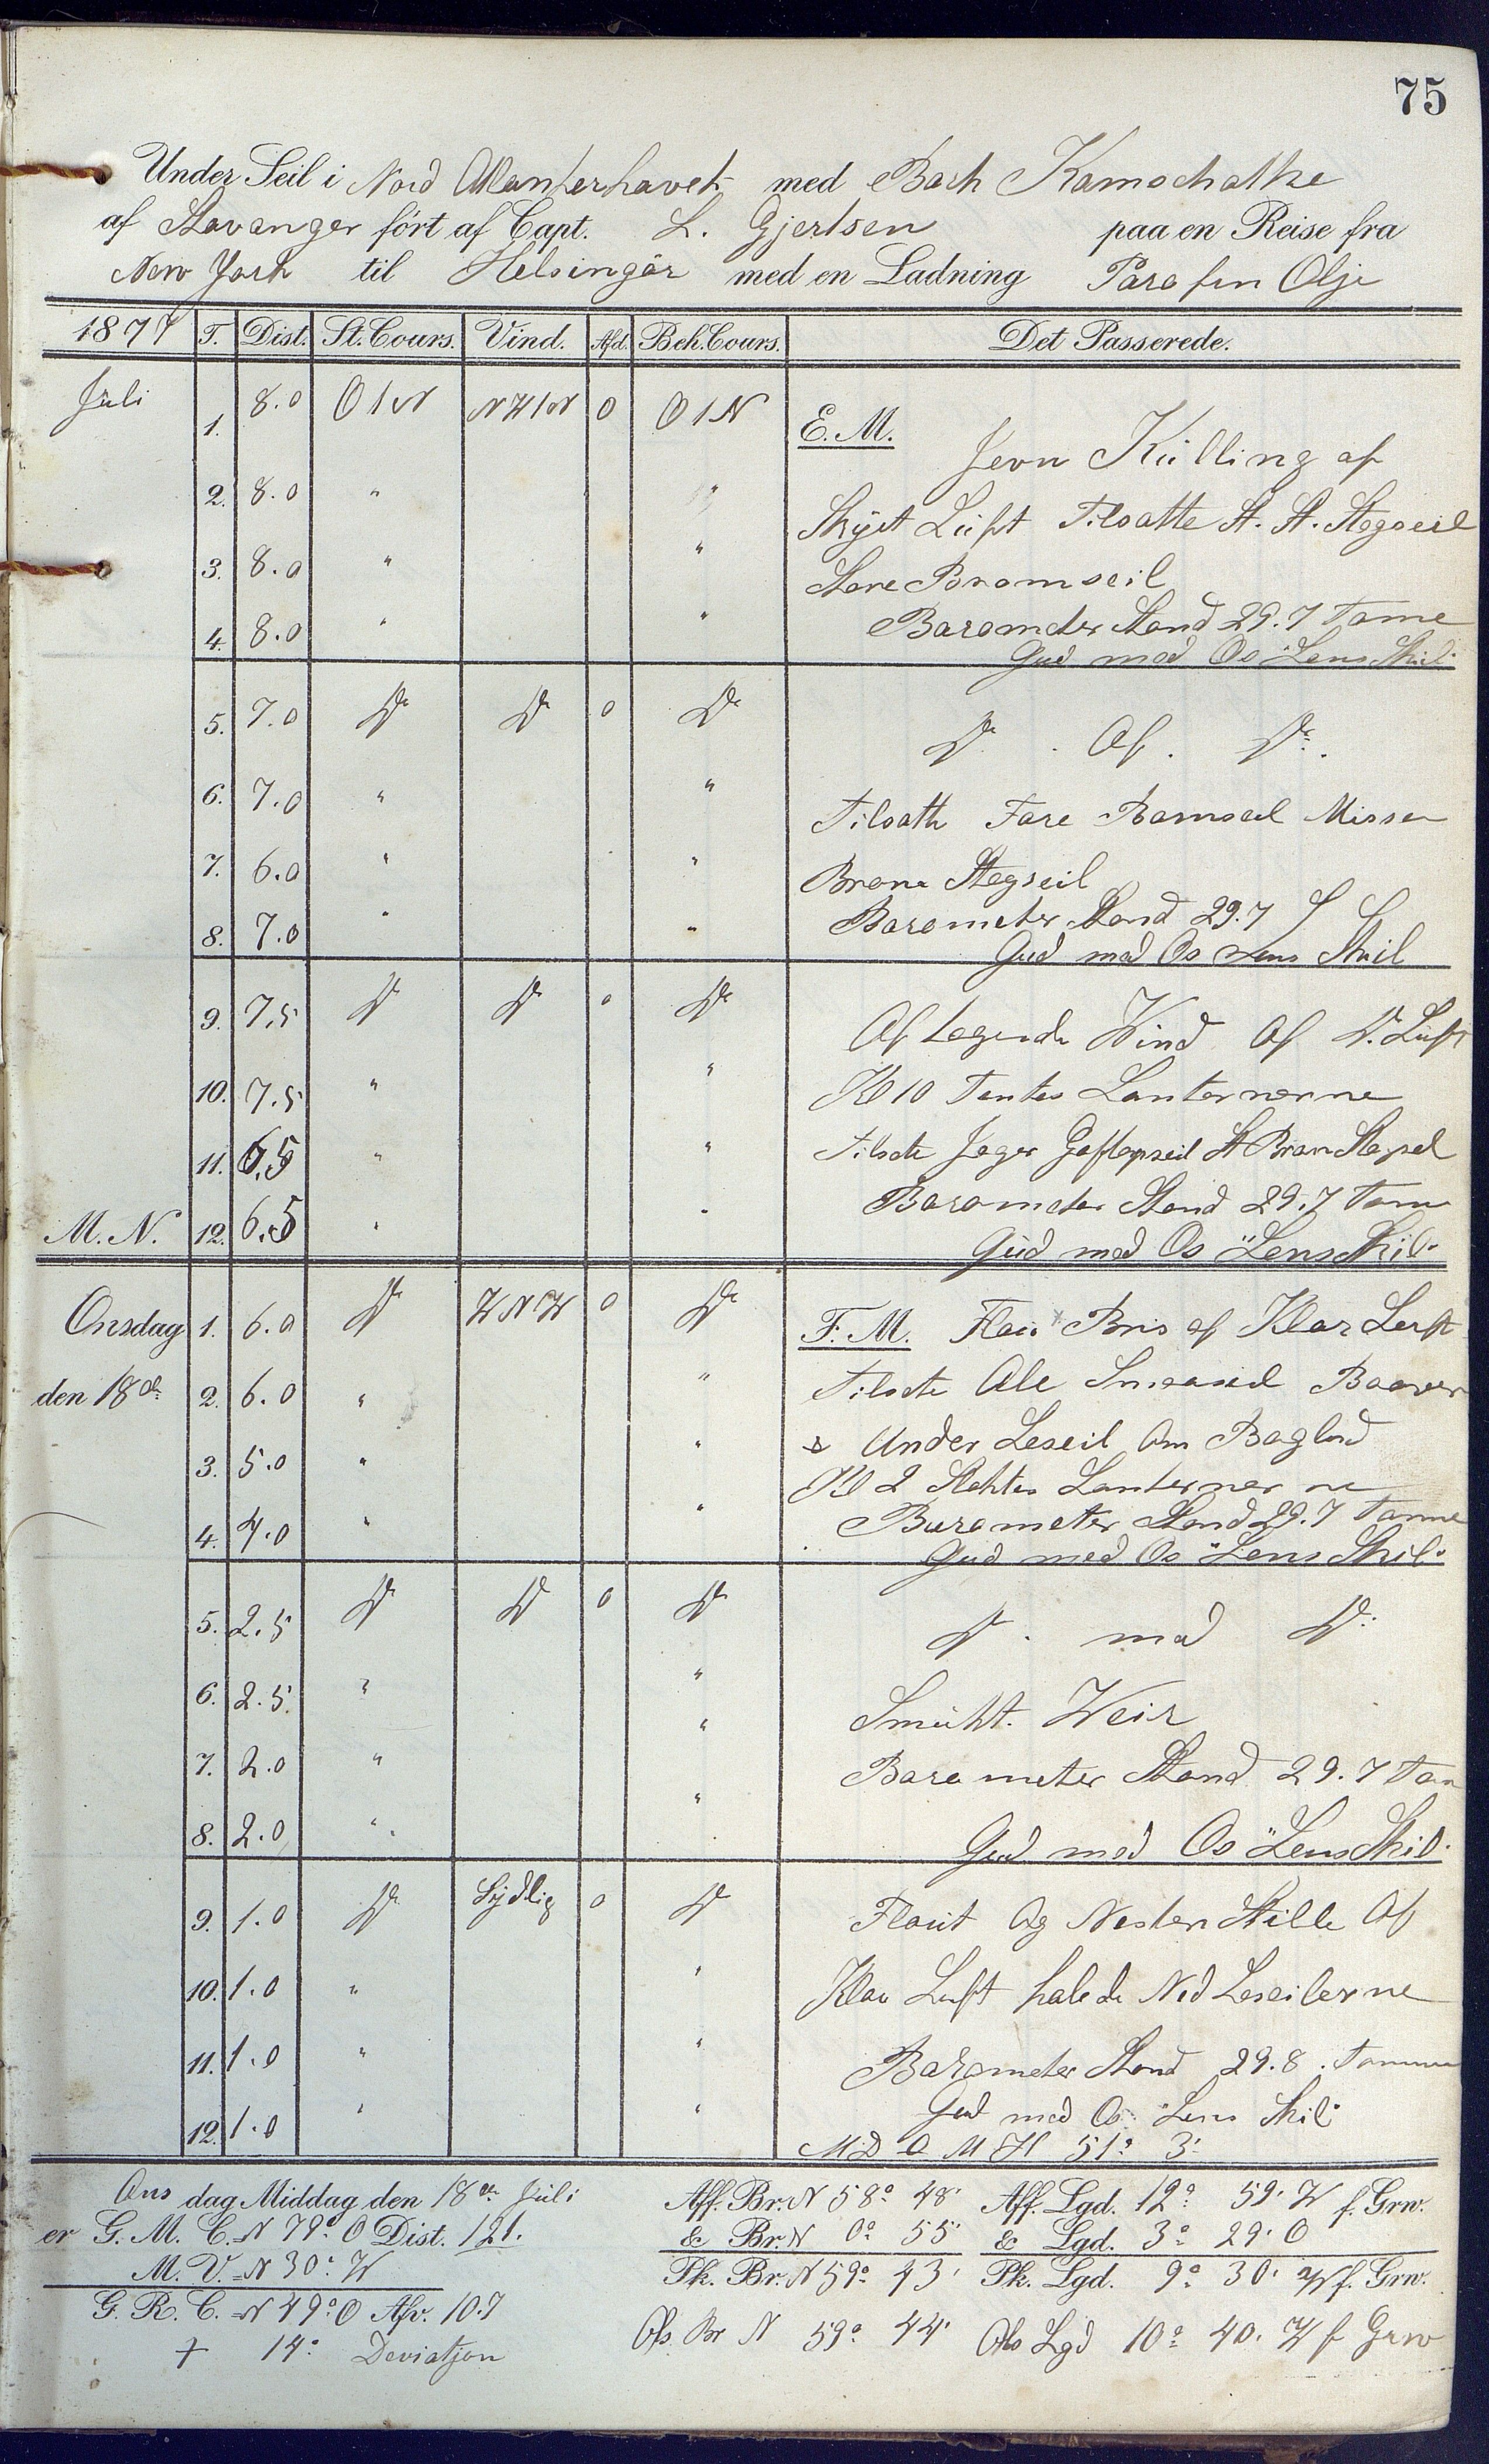 75
Under Seil i Nord Atlanterhavet med Bark Kamschatka
af Stavanger ført af Capt. L. Gjertsen paa en Reise fra
New York til Helsingør med en Ladning Parafin Olje
1877 T. Dist. St. Cours. Vind. Afd. Beh. Cours. Det Passerede.
Juli 1. 8.0 O 1 N NW 1 N 0 O 1 N E.M. Jevn Külling af
2. 8.0 " " Skyet Lüft Tilsatte St. St. Stagseil
3. 8.0 " " Store Bramseil
4. 8.0 " " Barometer Stand 29.7 Tomme
Gud med Os "Lens Skil"
5. 7.0 Do Do 0 Do Do . Af . Do .
6. 7.0 " " Tilsatte Fore Bramseil Missen
7. 6.0 " " Bram Stagseil
8. 7.0 " " Barometer Stand 29.7
Gud med Os Lens Skil
9. 7.5 Do Do 0 Do Aftagende Wind Af Do. Lüft
10. 7.5 " " Kl 10 Tentes Lanternerne
11. 6.5 " " Tilsatte Jager Gaftopseil St Bram Stagseil
M.N. 12. 6.5 " " Barometer Stand 29.7 Tomm
Gud med Os "Lens Skil"
Onsdag 1. 6.0 Do WNW 0 Do F.M. Flau Bris af Klar Luft
den 18de 2. 6.0 " " Tilsatte Ale Smaaseil Baaven
3. 5.0 " " & Under Leseil Om Bagbord
Kl 2 Slektes Lanternerne
4. 4.0 " " Barometer Stand 29.7 Tomme
Gud med Os "Lens Skil"
5. 2.5 Do Do 0 Do Do . med Do.
6. 2.5 " " Smükt. Weir
7. 2.0 " " Barometer Stand 29.7 Tom
8. 2.0 " " Gud med Os "Lens Skil"
9. 1.0 Do Sydlig 0 Do Flaut Og Nesten Stille Af
10. 1.0 " " Klar Luft halede Ned Leseilerne
11. 1.0 " " Barometer Stand 29.8 . Tomme
12. 1.0 " " Gud med Os "Lens Skil"
M D O M H 51° 3'
Ons dag Middag den 18de Juli Aff. Br. N 58° 48' Aff. Lgd. 12° 59' W f. Grw.
er G. M. C. N 79° O Dist. 121. & Br. N 0° 55' & Lgd. 3° 29' O
M. V. N 30° W Pk. Br. N 59° 43' Pk. Lgd. 9° 30' W f. Grw.
G. R. C. N 49° O Afv. 10.7 Obs. Br N 59° 44' Obs Lgd 10° 40' W f Grw
+ 14° Deviatjon